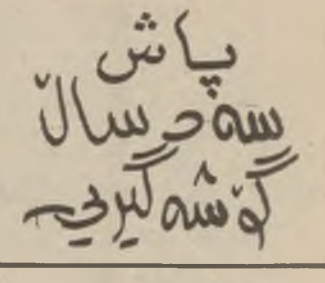 پاش
سەد ساڵ
گۆشەگیریی